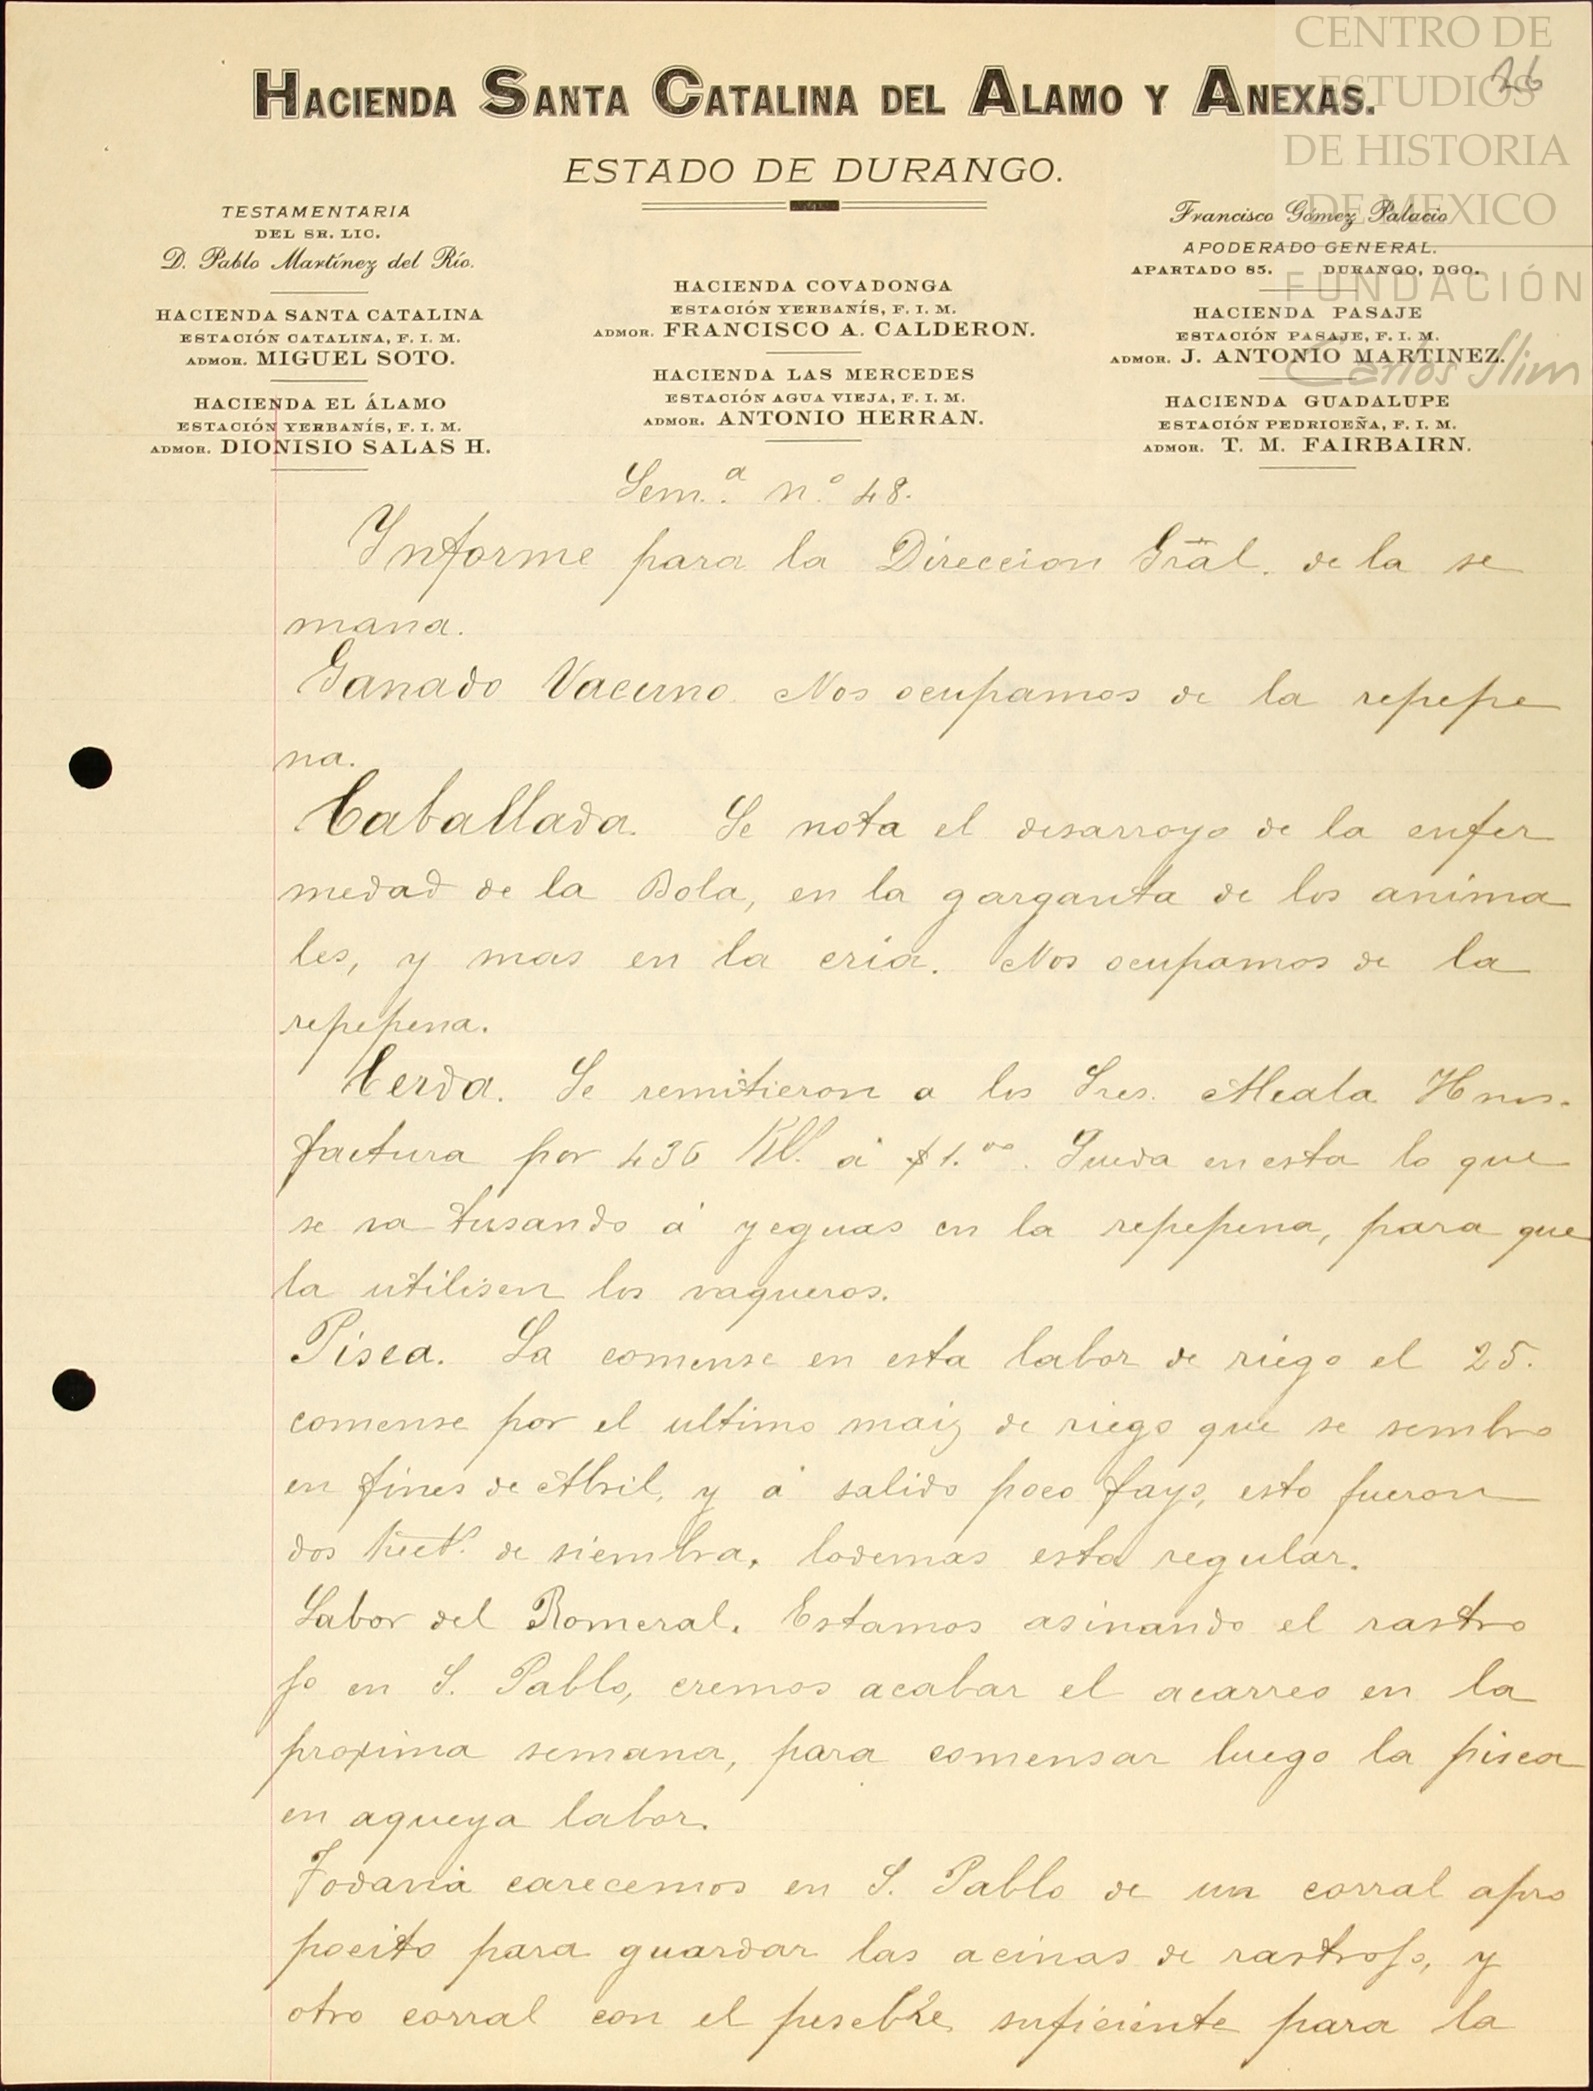 CENTRO DE
ESTUDIOS
DE HISTORIA
DE MEXICO
FUNDACIÓN
Carlos Slim
26
HACIENDA SANTA CATALINA DEL ALAMO Y ANEXAS.
ESTADO DE DURANGO.
TESTAMENTARIA
DEL SR. LIC.
D. Pablo Martínez del Río.
HACIENDA SANTA CATALINA
ESTACIÓN CATALINA, F. I. M.
ADMOR. MIGUEL SOTO.
HACIENDA EL ÁLAMO
ESTACIÓN YERBANÍS, F. I. M.
ADMOR. DIONISIO SALAS H.
HACIENDA COVADONGA
ESTACIÓN YERBANÍS, F. I. M.
ADMOR. FRANCISCO A. CALDERON.
HACIENDA LAS MERCEDES
ESTACIÓN AGUA VIEJA, F. I. M.
ADMOR. ANTONIO HERRAN.
Francisco Gómez Palacio
APODERADO GENERAL.
APARTADO 85. DURANGO, DGO.
HACIENDA PASAJE
ESTACIÓN PASAJE, F. I. M.
ADMOR. J. ANTONIO MARTINEZ.
HACIENDA GUADALUPE
ESTACIÓN PEDRICEÑA, F. I. M.
ADMOR. T. M. FAIRBAIRN.
Sem.ª n.º 48.
Informe para la Direccion Gral. de la se
mana.
Ganado Vacuno. Nos ocupamos de la repepe
na.
Caballada. Se nota el desarroyo de la enfer
medad de la Bola, en la garganta de los anima
les, y mas en la cria. Nos ocupamos de la
repepena.
Cerda. Se remitieron a los Sres. Alcala Hnos.
factura por 436 Kl. á $1.00. Queda en esta lo que
se va tusando á yeguas en la repepena, para que
la utilisen los vaqueros.
Pisca. La comense en esta labor de riego el 25.
comense por el ultimo maiz de riego que se sembro
en fines de Abril, y á salido poco fayo, esto fueron
dos hect. de siembra, lodemas esta regular.
Labor del Romeral. Estamos asinando el rastro
jo en S. Pablo, cremos acabar el acarreo en la
proxima semana, para comensar luego la pisca
en aqueya labor.
Todavia carecemos en S. Pablo de un corral apro
pocito para guardar las acinas de rastrojo, y
otro corral con el pesebre suficiente para la